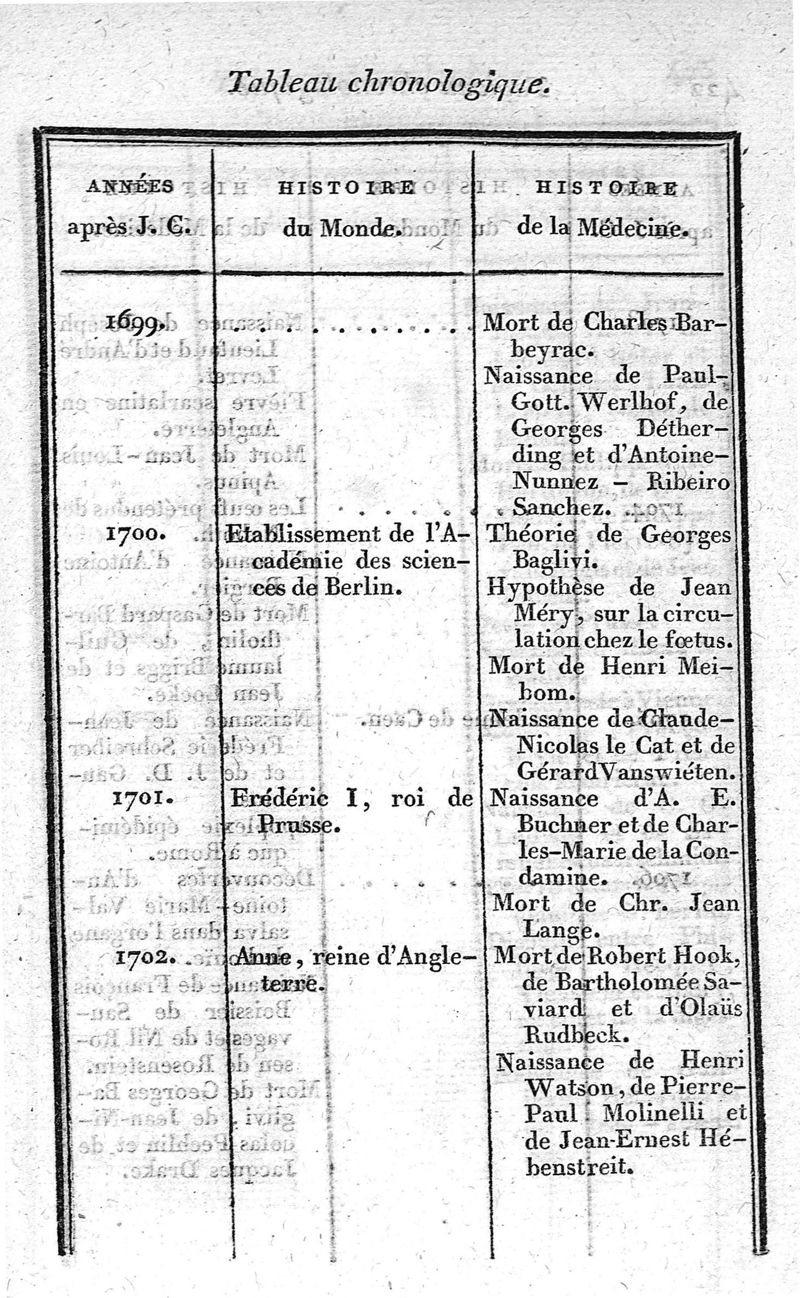 Tableau chronologique.
ANNÉES
après J. C.
HISTOIRE
du Monde.
HISTOIRE
de la Médecine.
1699.
. . . . . . . . . . .
Mort de Charles Bar-
beyrac.
Naissance de Paul-
Gott. Werlhof, de
Georges Déther-
ding et d'Antoine-
Nunnez – Ribeiro
Sanchez.
1700.
Etablissement de l'A-
cadémie des scien-
ces de Berlin.
Théorie de Georges
Baglivi.
Hypothèse de Jean
Méry, sur la circu-
lation chez le fœtus.
Mort de Henri Mei-
bom.
Naissance de Claude-
Nicolas le Cat et de
Gérard Vanswiéten.
1701.
Frédéric I, roi de
Prusse.
Naissance d'A. E.
Buchner et de Char-
les-Marie de la Con-
damine.
Mort de Chr. Jean
Lange.
1702.
Anne, reine d'Angle-
terre.
Mort de Robert Hook,
de Bartholomée Sa-
viard et d'Olaüs
Rudbeck.
Naissance de Henri
Watson, de Pierre-
Paul Molinelli et
de Jean-Ernest Hé-
benstreit.